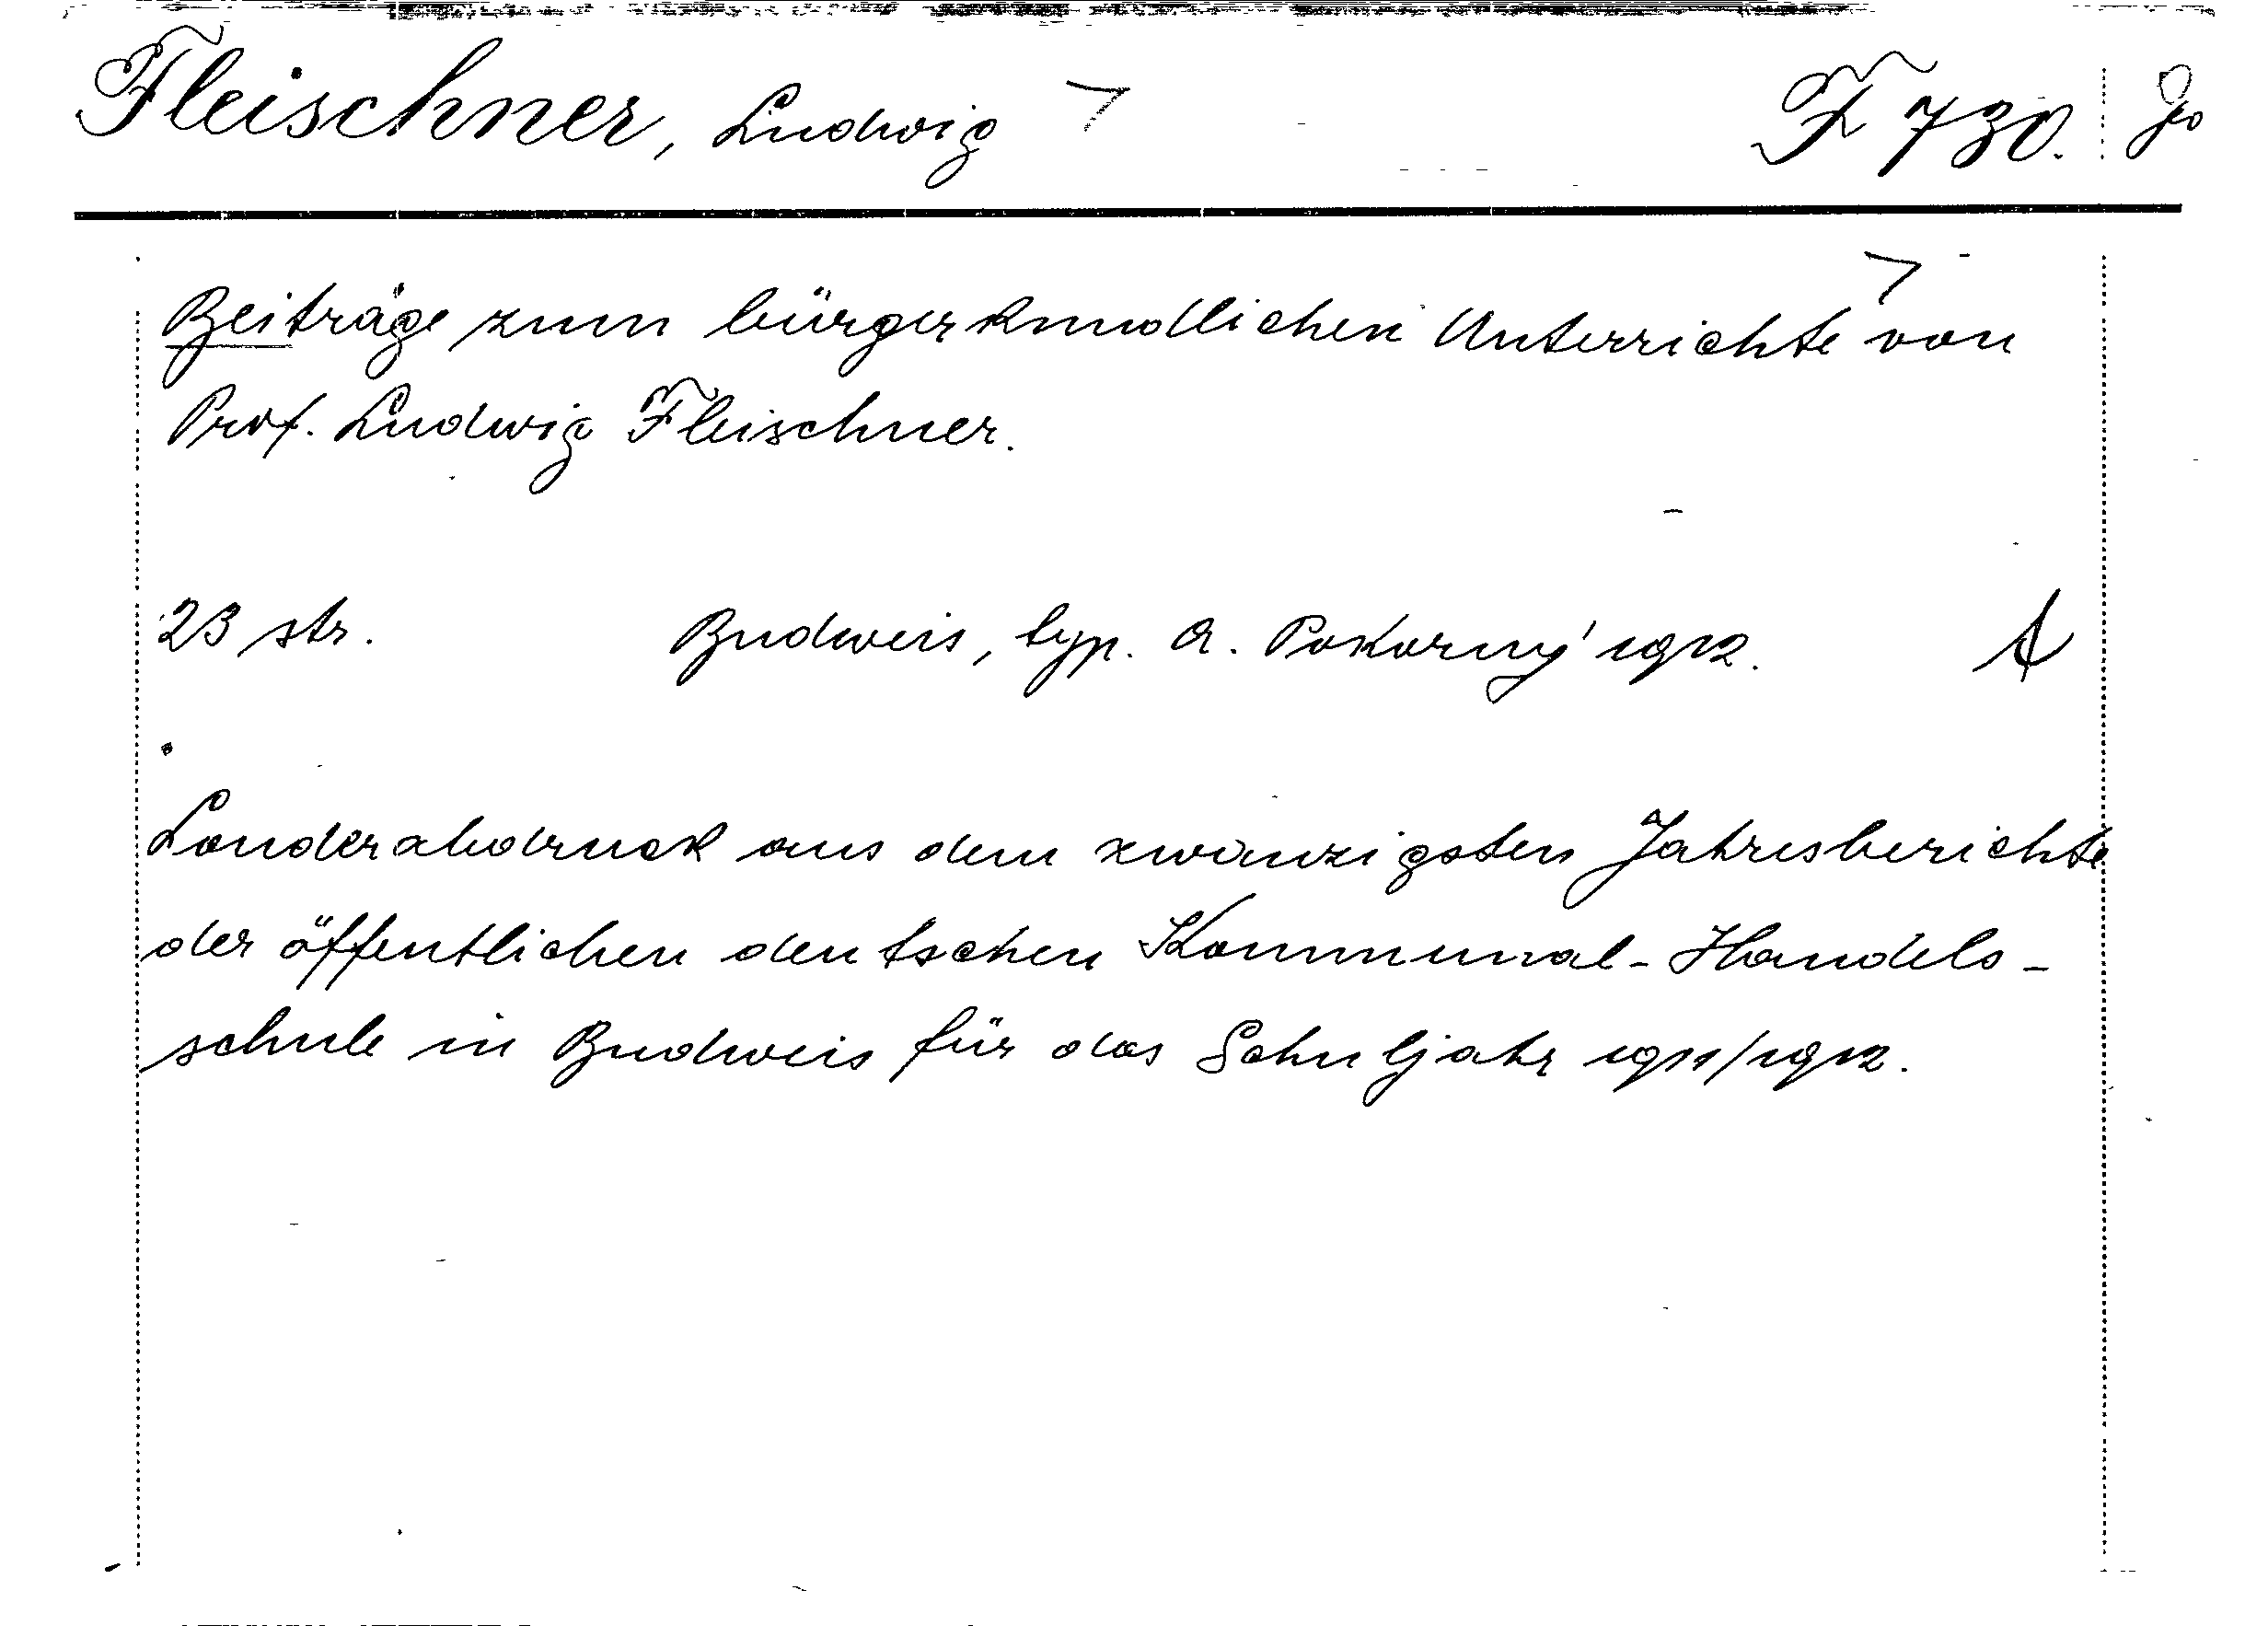 Fleischner, Ludwig F 730.
Beiträge zum bürgerkundlichen Unterrichte von
Prof. Ludwig Fleischner.
23 str. Budweis, typ. A. Pokorný 1912.
Sonderabdruck aus dem zwanzigsten Jahresberichte
der öffentlichen deutschen Kommunal-Handels-
schule in Budweis für das Schuljahr 1911/1912.